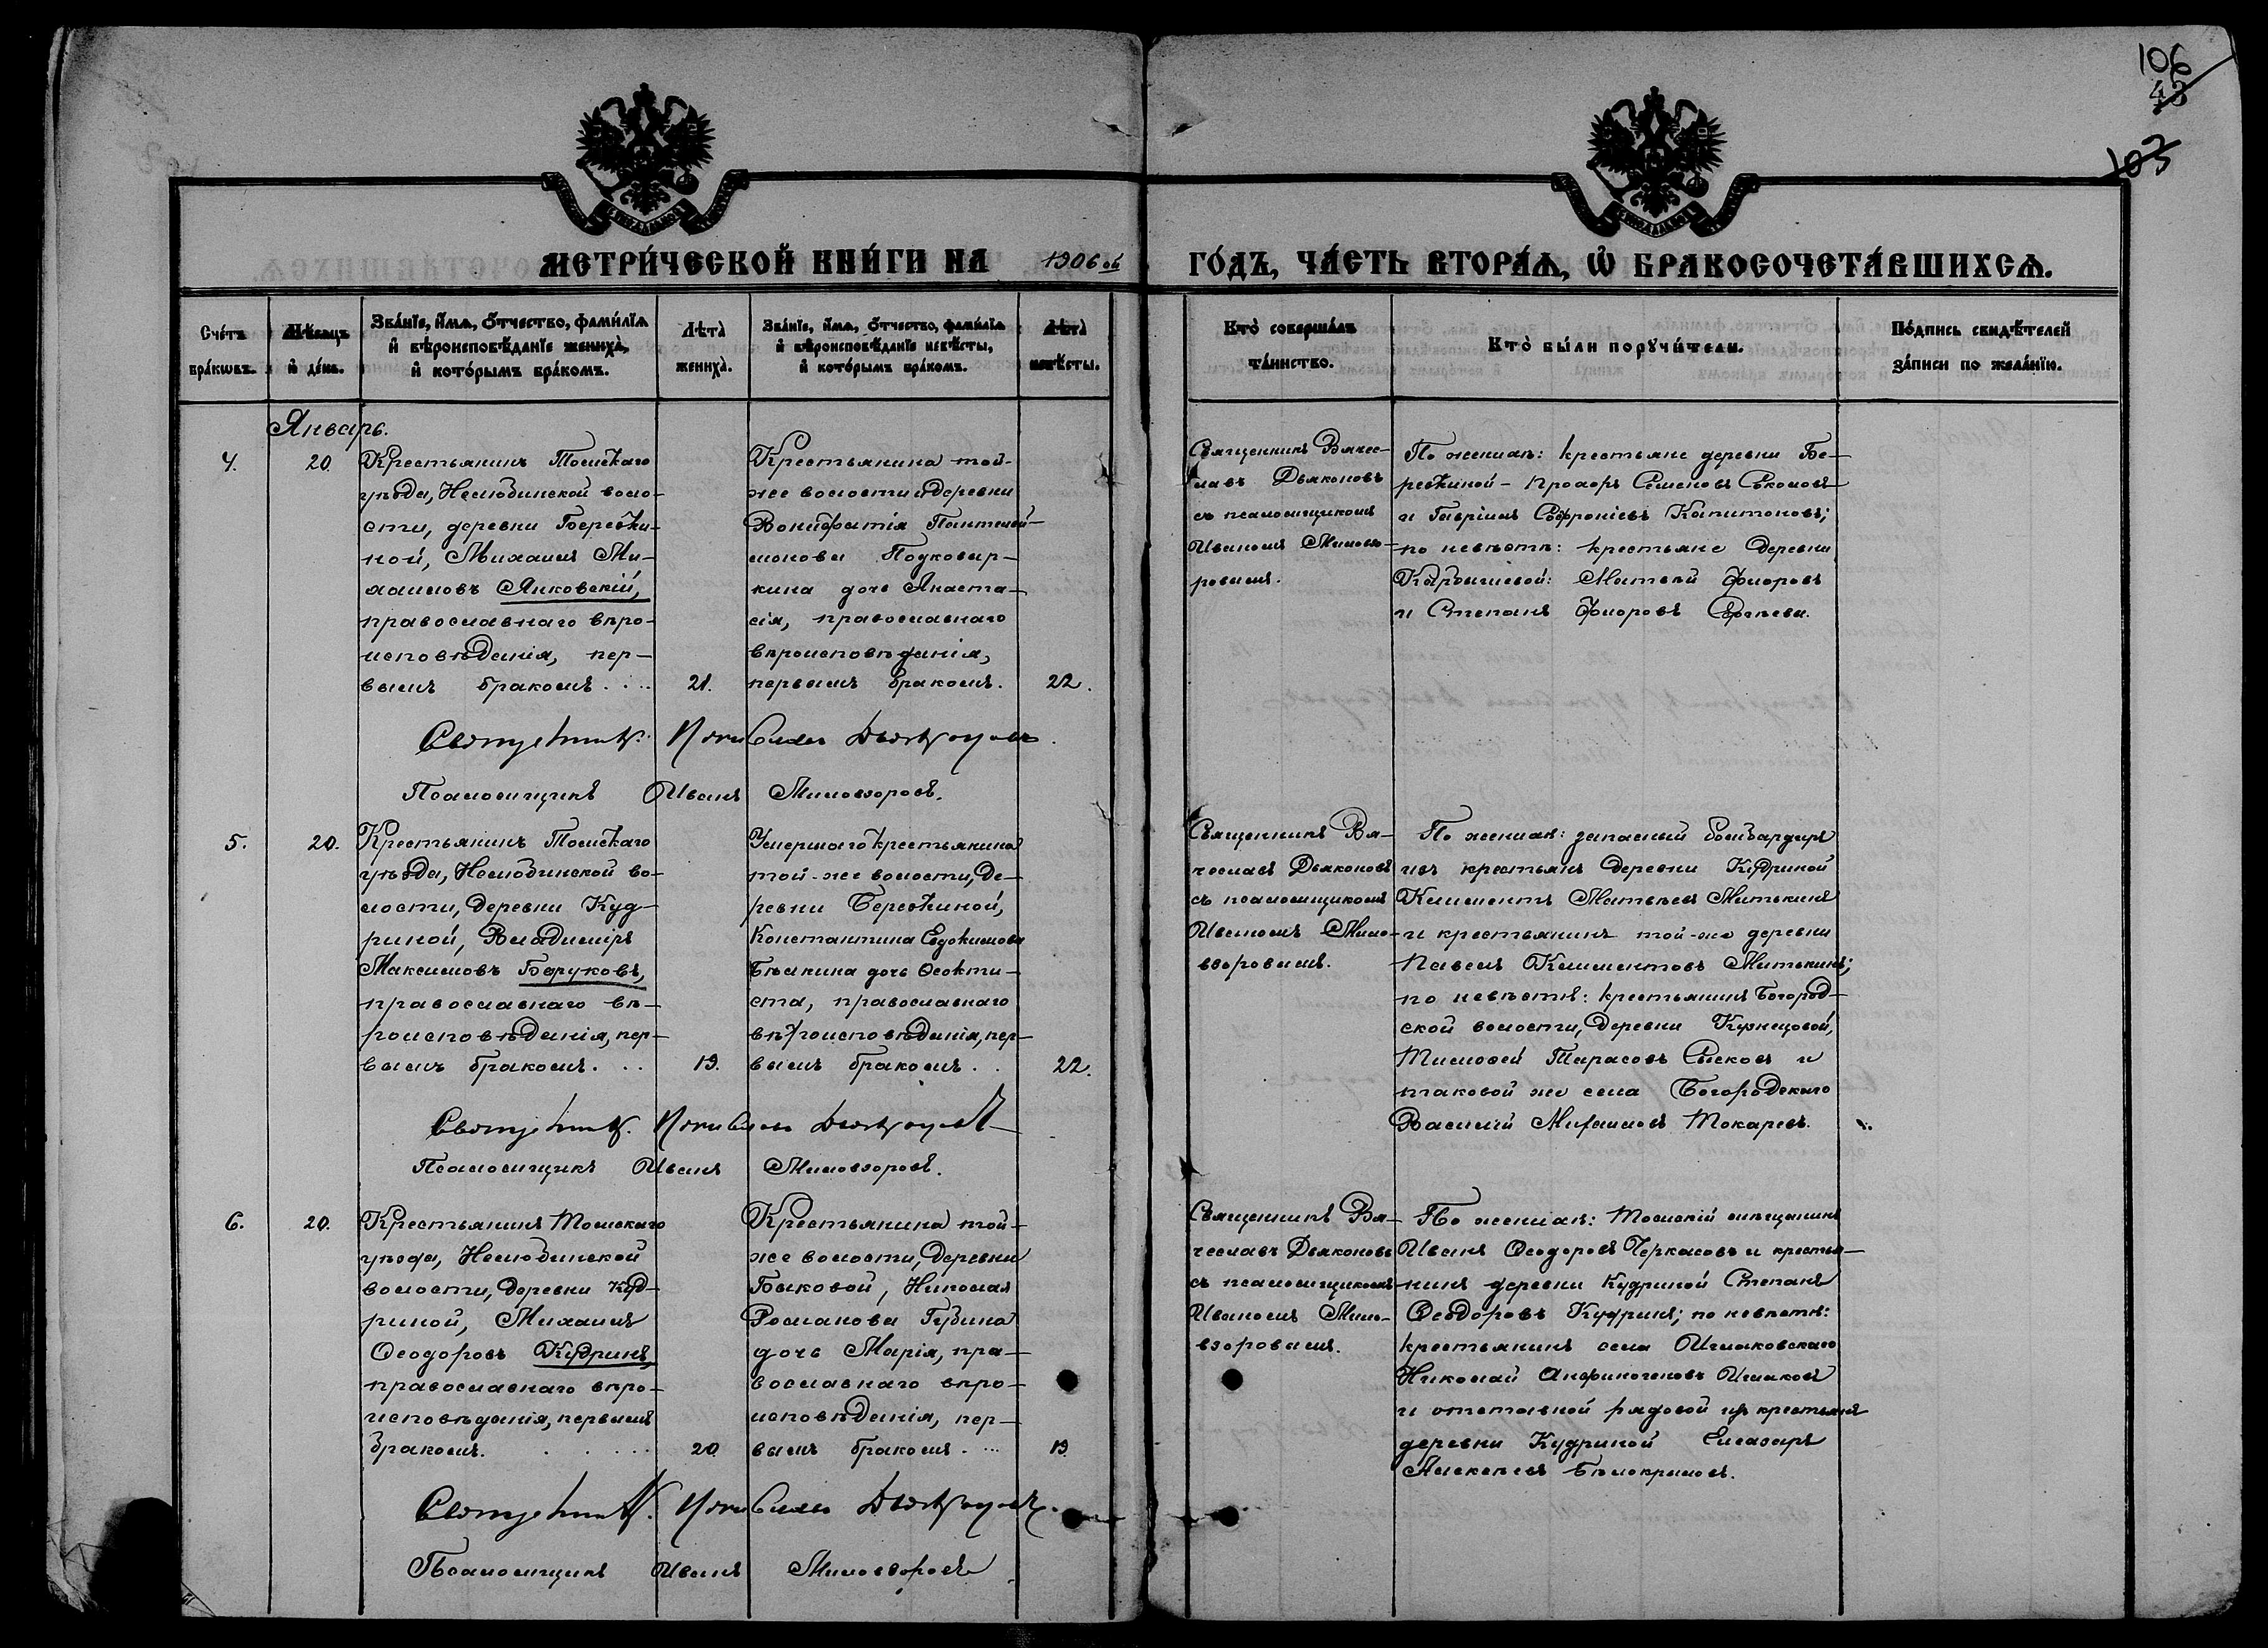 106
43
103
МЕТРИ́ЧЕСКОЙ КНИ́ГИ НА 1906 ой ГО́ДЪ, ЧА́СТЬ ВТОРА́Я, Ѡ БРАКОСОЧЕТА́ВШИХСЯ.
Сче́тъ бра́кѡвъ.
Мѣ́сяцъ и҆ де́нь.
Зва́нїе, и҆́мя, о҆́тчество, фами́лїя и҆ вѣроисповѣ́данїе женихà, и҆ кото́рымъ бра́комъ.
Лѣта̀ женихà.
Зва́нїе, и҆́мя, о҆́тчество, фами́лїя и҆ вѣроисповѣ́данїе невѣ́сты, и҆ кото́рымъ бра́комъ.
Лѣта̀ невѣ́сты.
Кто̀ соверша́лъ та́инство.
Кто̀ бы́ли поручи́тели.
По́дпись свидѣ́телей за́писи по жела́нїю.
Январь.
4.
20.
Крестьянинъ Томскаго
уѣзда, Нелюбинской воло-
сти, деревни Берёзки-
ной, Михаилъ Ми-
хаиловъ Янковскій,
православнаго вѣро-
исповѣданія, пер-
вымъ бракомъ.
21.
Крестьянина той-
же волости и деревни
Вонифатія Пантелей-
монова Подковыр-
кина дочь Анаста-
сія, православнаго
вѣроисповѣданія,
первымъ бракомъ.
22.
Священникъ Вячес-
лавъ Дьяконовъ
съ псаломщикомъ
Иваномъ Миловзо-
ровымъ.
По женихѣ: крестьяне деревни Бе-
рёзкиной - Прохоръ Семеновъ
и Гавріилъ Софроніевъ Капитоновъ;
по невѣстѣ: крестьяне деревни
Карбышевой: Матвѣй Флоровъ
и Степанъ Флоровъ Ефтѣевы.
Священникъ Вячеславъ Дьяконовъ.
Псаломщикъ Иванъ Миловзоровъ.
5.
20.
Крестьянинъ Томскаго
уѣзда, Нелюбинской во-
лости, деревни Куд-
риной, Владиміръ
Максимовъ Баруковъ,
православнаго вѣ-
роисповѣданія, пер-
вымъ бракомъ.
19.
Умершаго крестьянина
той-же волости, де-
ревни Берёзкиной,
Константина Евдокимова
Бѣлкина дочь Ѳеокти-
ста, православнаго
вѣроисповѣданія, пер-
вымъ бракомъ.
22.
Священникъ Вя-
чеславъ Дьяконовъ
съ псаломщикомъ
Иваномъ Мило-
взоровымъ.
По женихѣ: запасный бомбардиръ
изъ крестьянъ деревни Кудриной
Климентъ Матвѣевъ Митькинъ
и крестьянинъ той-же деревни
Павелъ Климентовъ Митькинъ;
по невѣстѣ: крестьянинъ Богород-
ской волости, деревни Кузнецовой,
Тимоѳей Тарасовъ Сысковъ и
таковой же села Богородскаго
Василій Михаиловъ Токаревъ.
Священникъ Вячеславъ Дьяконовъ
Псаломщикъ Иванъ Миловзоровъ.
6.
20.
Крестьянинъ Томскаго
уѣзда, Нелюбинской
волости, деревни Куд-
риной, Михаилъ
Ѳеодоровъ Кудринъ,
православнаго вѣро-
исповѣданія, первымъ
бракомъ.
20.
Крестьянина той-
же волости, деревни
Быковой, Николая
Романова Губина
дочь Марія, пра-
вославнаго вѣро-
исповѣданія, пер-
вымъ бракомъ.
19.
Священникъ Вя-
чеславъ Дьяконовъ
съ псаломщикомъ
Иваномъ Мило-
взоровымъ.
По женихѣ: Томскій мѣщанинъ
Иванъ Ѳеодоровъ Черкасовъ и крестья-
нинъ деревни Кудриной Степанъ
Ѳеодоровъ Кудринъ; по невѣстѣ:
крестьянинъ села Иглаковскаго
Николай Анфиногеновъ Иглаковъ
и отставной рядовой изъ крестьянъ
деревни Кудриной Елеазаръ
Алексѣевъ Бѣлокрыловъ.
Священникъ Вячеславъ Дьяконовъ.
Псаломщикъ Иванъ Миловзоровъ